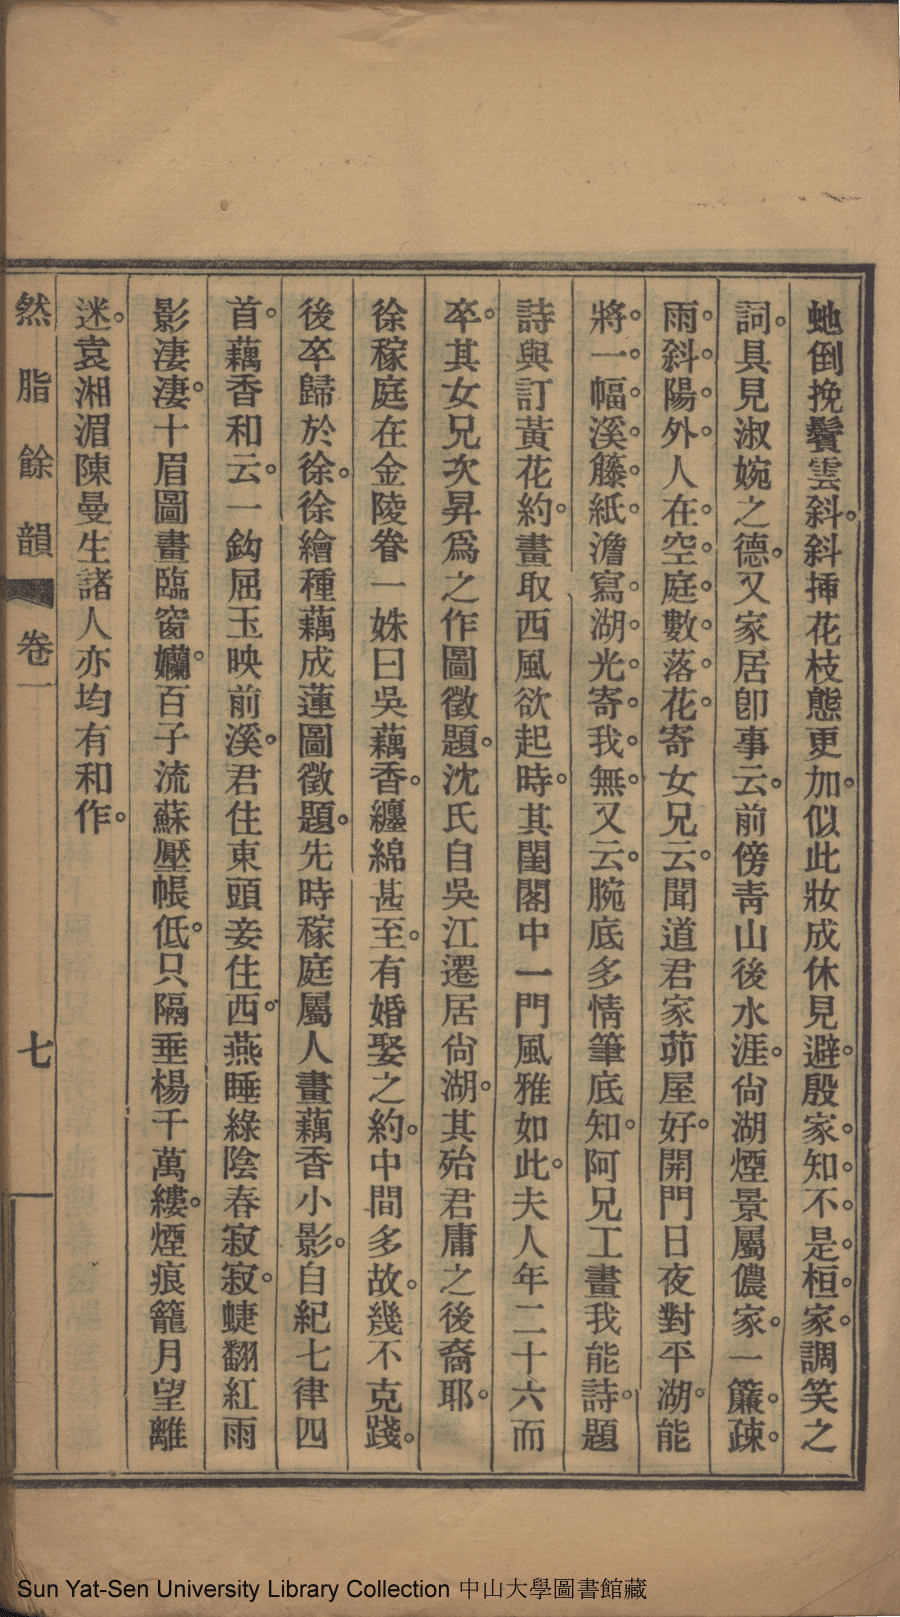 虵倒挽鬢雲斜。斜揷花枝態更加。似此妝成休見避。殷家。知。不。是。桓。家。調笑之
詞。具見淑婉之德。又家居卽事云。前傍靑山後水涯。尙湖煙景屬儂家。一簾。疎。
雨。斜。陽。外。人在。空。庭。數。落。花。寄女兄云。聞道君家茆屋好。開門日夜對平湖。能
將。一。幅。溪。籐。紙。澹寫。湖。光。寄。我。無。又云。腕底多情筆底知。阿兄工畫我能詩。題
詩與訂黃花約。畫取西風欲起時。其閨閣中一門風雅如此。夫人年二十六而
卒。其女兄次昇爲之作圖徵題。沈氏自吳江遷居尙湖。其殆君庸之後裔耶。
徐稼庭在金陵眷一姝曰吳藕香。纏綿甚至。有婚娶之約。中間多故。幾不克踐。
後卒歸於徐。徐繪種藕成蓮圖徵題。先時稼庭屬人畫藕香小影。自紀七律四
首。藕香和云。一鈎屈玉映前溪。君住東頭妾住西。燕睡綠陰春寂寂。蜨翻紅雨
影淒淒。十眉圖畫臨窗嬾。百子流蘇壓帳低。只隔垂楊千萬縷。煙痕籠月望離
迷。袁湘湄陳曼生諸人亦均有和作。
然脂餘韻 卷一 七
Sun Yat-Sen University Library Collection 中山大學圖書館藏